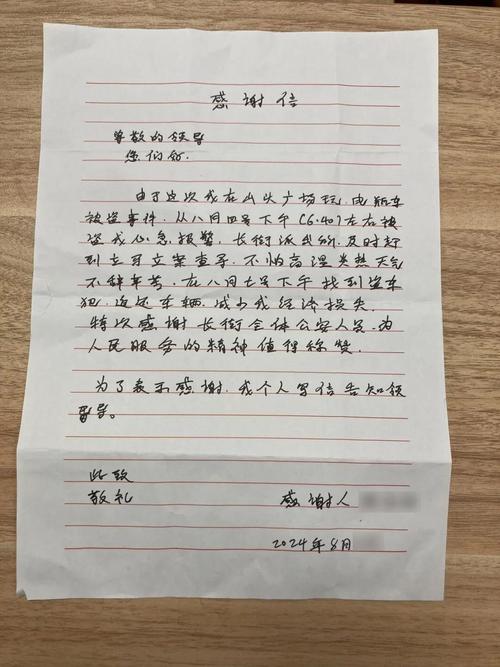 感谢信
尊敬的领导
您们好.
由于这次我在山头广场玩,电瓶车
被盗事件.从八月四号下午(6.40)左右被
盗我心急报警,长街派出所,及时赶
到去寻立案查寻.不怕高温炎热天气
不辞辛劳.在八月七号下午找到盗车
犯.返还车辆.减少我经济损失.
特次感谢长街全体公安人员.为
人民服务的精神值得称赞.
为了表示感谢.我个人写信告知领
导。
此致
敬礼
感谢人
2024年8月